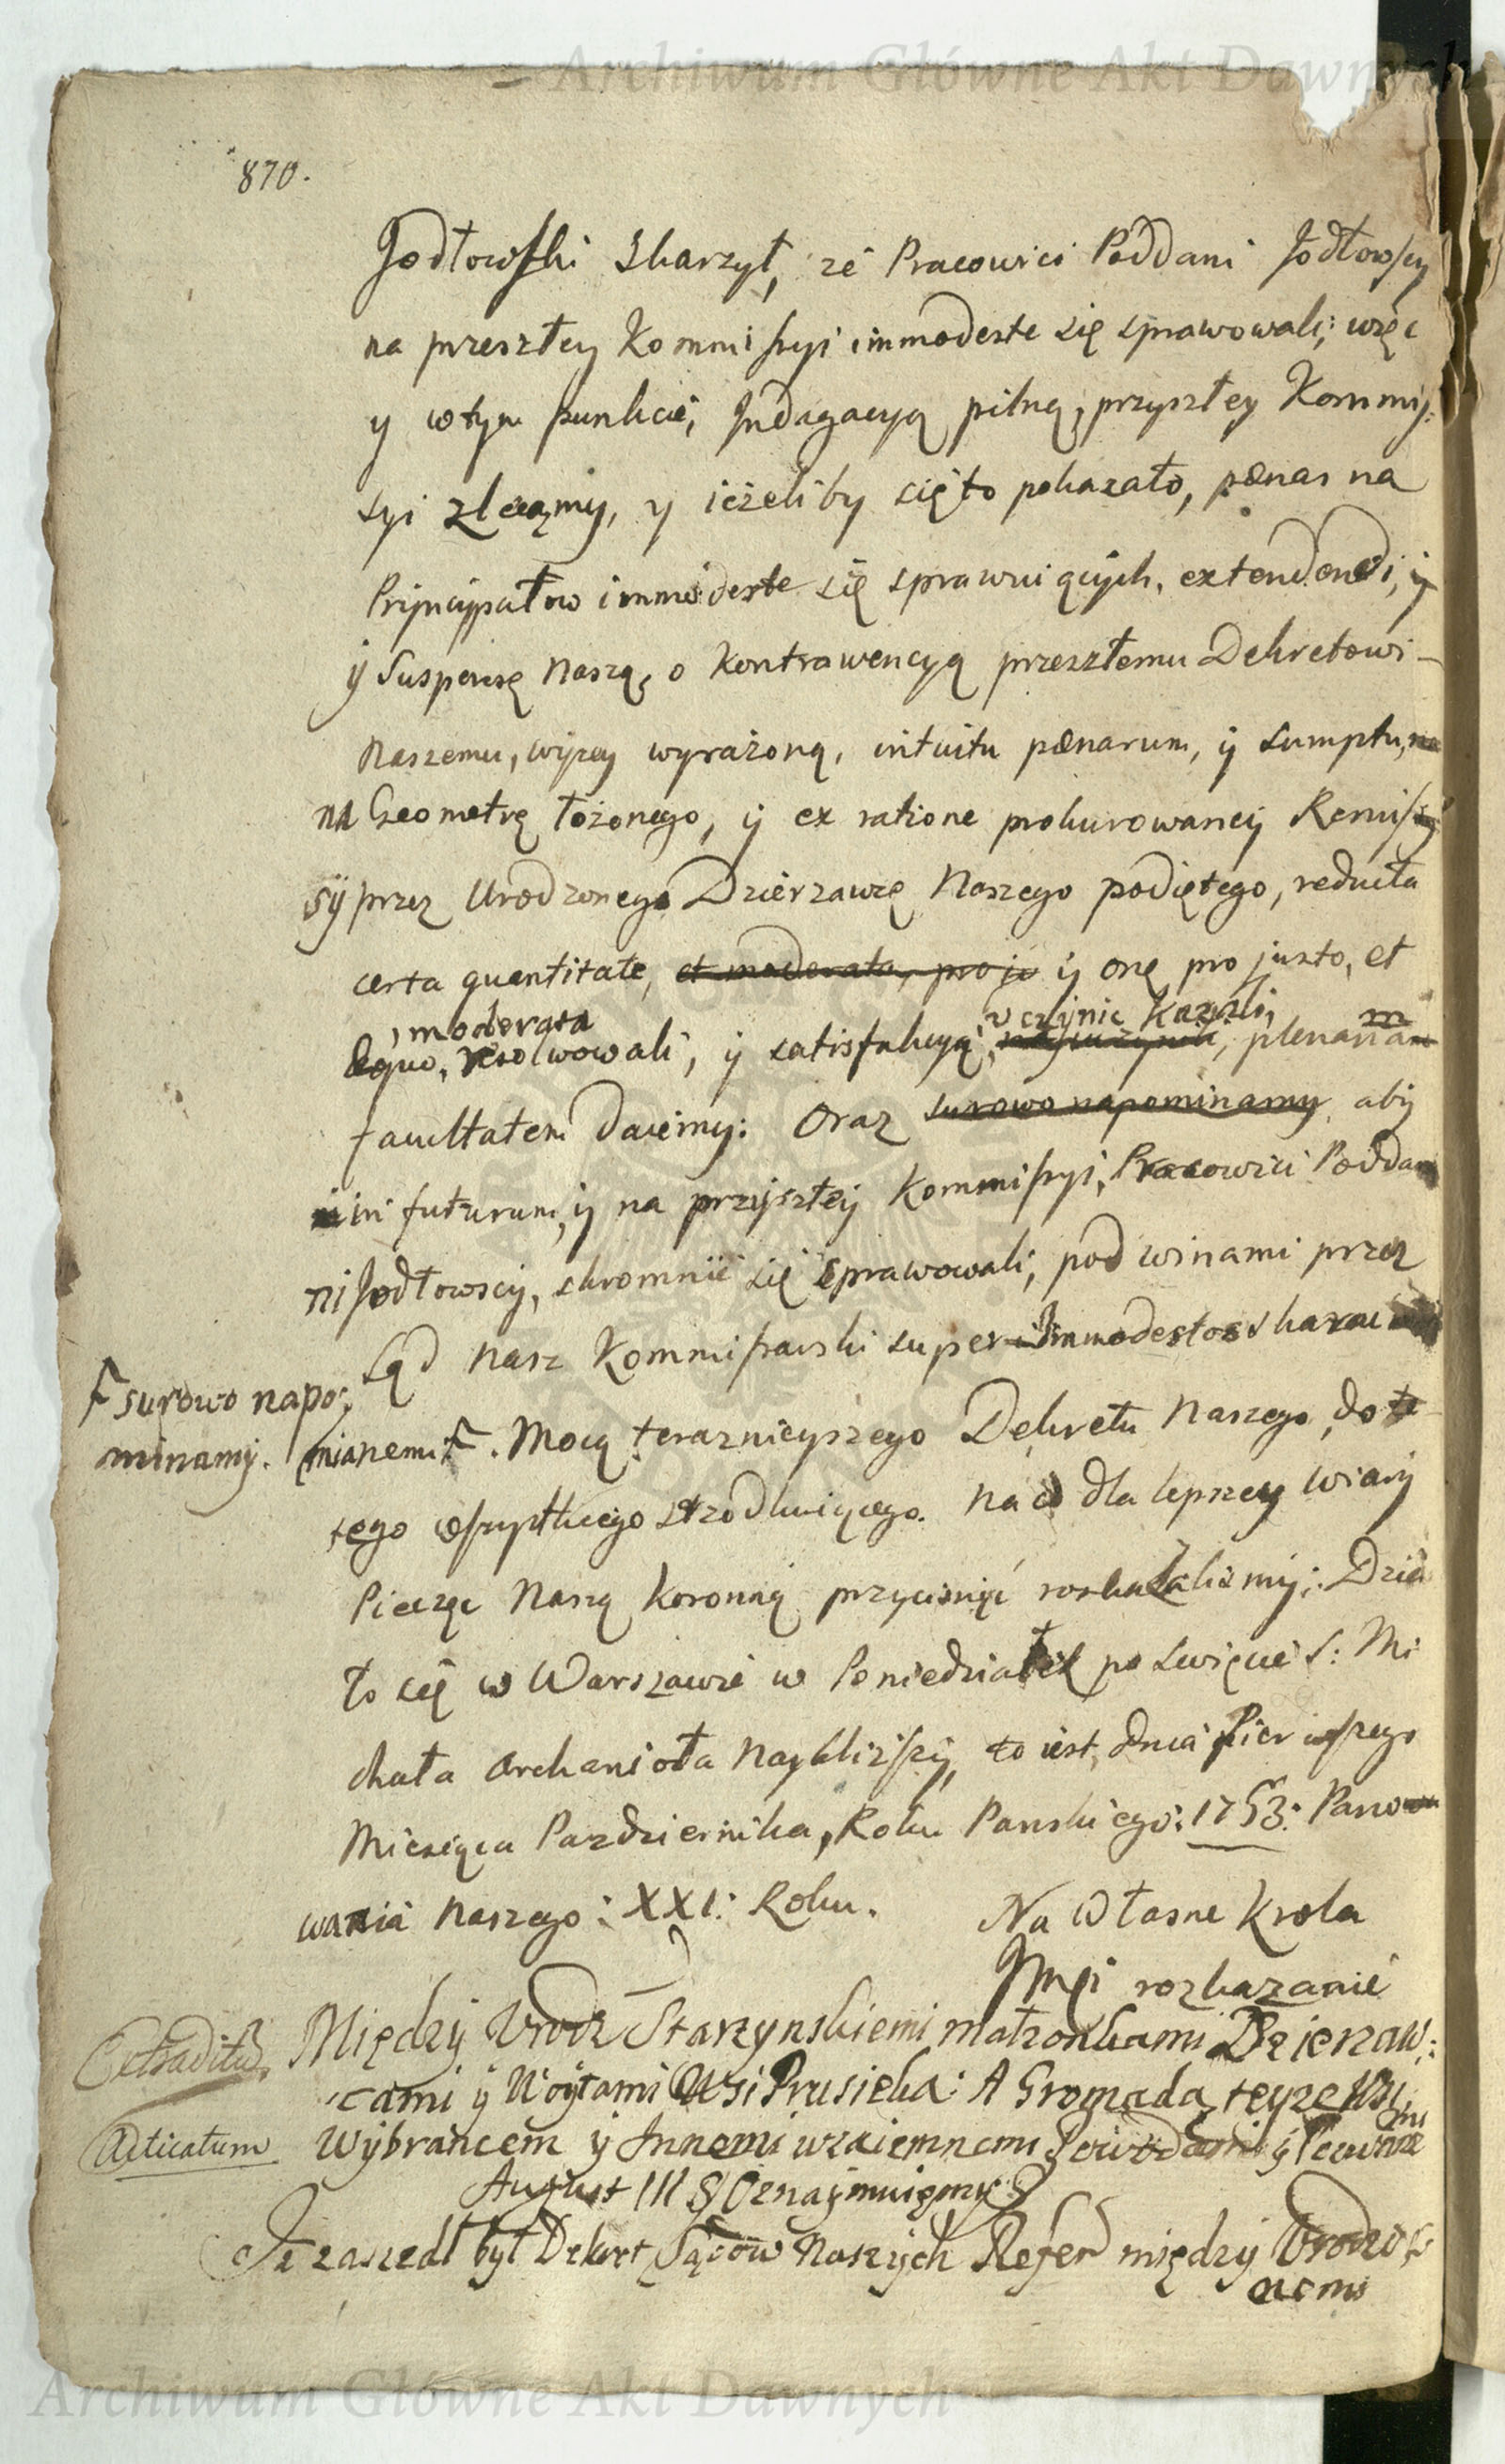 Archiwum Główne Akt Dawnych
870.
Jodłowski Skarzył, że Pracowici Poddani Jodłowscy
na przeszłey Kommissyi immodeste się sprawowali; więc
y w tym punkcie, Indagacyą pilną, przyszłey Kommis:
syi zlecamy, y ieżeliby się to pokazało, pœnas na
Pryncypałow immodeste się sprawuiących, extendendi, y
y Suspensę Naszą, o Kontrawencyą przeszłemu Dekretowi
Naszemu, wyzey wyrażoną, intuitu pœnarum, y sumptu,
na Geometrę łożonego, y ex ratione prokurowaney Remis
sÿ przez Urodzonego Dzierzawcę Naszego podiętego, reducta
certa quantitate, et moderata, pro ju y onę pro justo, et
, moderata uczynic Kazali, m
æquo, resolwowali, y satisfakcyą, plenariam
facultatem daiemy: Oraz surowo napominamy aby
in futurum, y na przyszłey Kommissyi, Pracowici Poddan
ni Jodłowscy, skromnie się sprawowali, pod winami przez
Sąd Nasz Kommissarski super Immodestos
F surowo napo:
minamy.
mianemi F. Mocą teraznieyszego Dekretu Naszego, do te
tego wszystkiego Na co dla lepszey wiary
Pieczęc Naszą Koronną przycisnąć roskazalismy: Dzia
ło się w Warszawie w Poniedziałek po swięcie S: Mi
chała Archanioła Nayblizszy, to iest, Dnia Pierwszego
Miesiąca Pazdziernika, Roku Panskiego: 1753: Pano
wania Naszego: XXI: Roku. Na Własne Krola
Jmci rozkazanie
Extraditum
Między Urodz Starzynskiemi małzonkami Dzierzaw:
cami y Woytami Wsi Prusieka: A Gromadą teyze Wsi,
Acticatum
Wybrancem y Innemi wzaiemnemi Powodami y Pozwane
mi
August III S Oznaymuiemy S
Iz zaszedł był Dekret Sądow Naszych Refer między Urodzo
nemi
Archiwum Główne Akt Dawnych